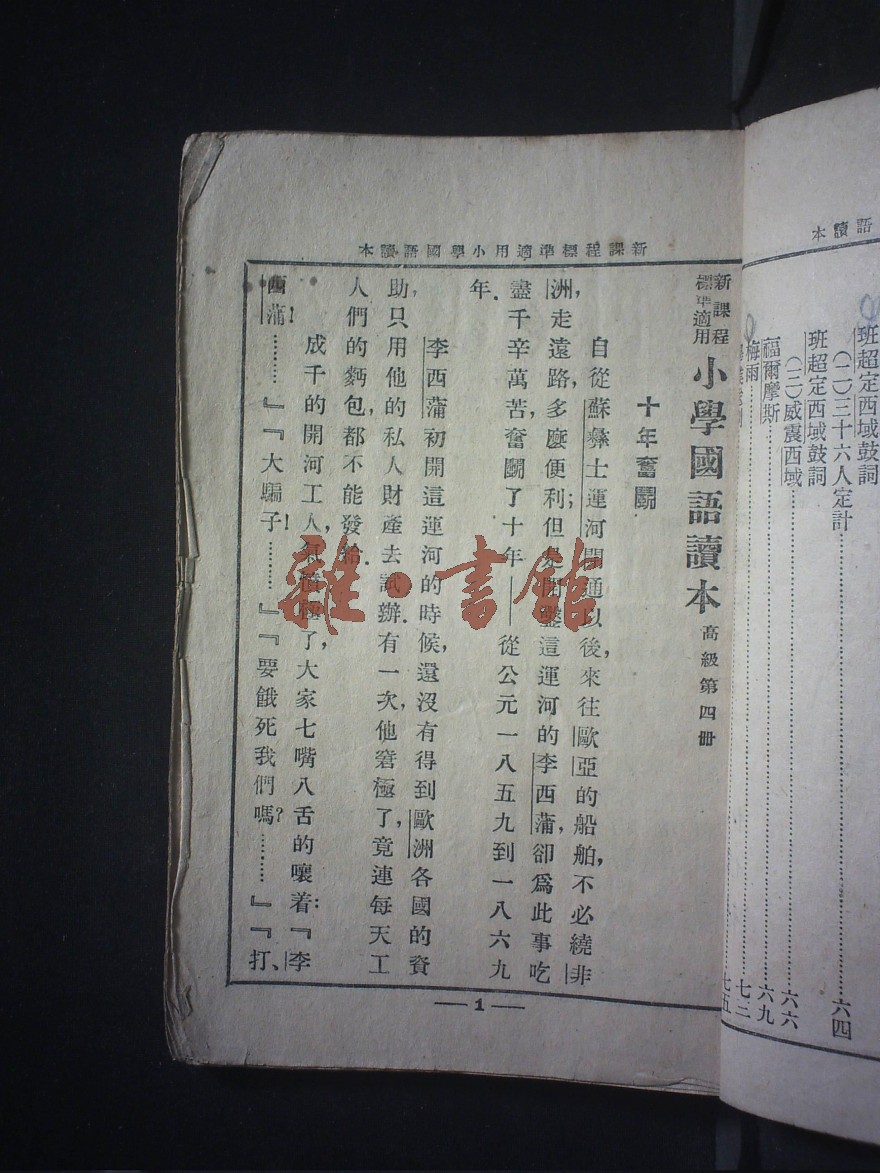 語讀本
班超定西域鼓詞
(二)三十六人定計……………六四
班超定西域鼓詞
(三)威震西域……………六六
福爾摩斯……………六九
梅雨……………七二
七五
新課程標準適用小學國語讀本
新課程
標準適用
小學國語讀本 高級第四冊
十年奮鬭
自從蘇彝士運河開通以後,來往歐亞的船舶,不必繞非
洲,走遠路,多麽便利;但是開鑿這運河的李西蒲,卻爲此事吃
盡千辛萬苦,奮鬭了十年——從公元一八五九到一八六九
年.
李西蒲初開這運河的時候,還沒有得到歐洲各國的資
助,只用他的私人財產去試辦.有一次,他窘極了,竟連每天工
人們的麪包,都不能發給.
成千的開河工人,氣憤極了,大家七嘴八舌的嚷着:『李
西蒲!………』『大騙子!………』『要餓死我們嗎?………』『打、
1
雜·書館